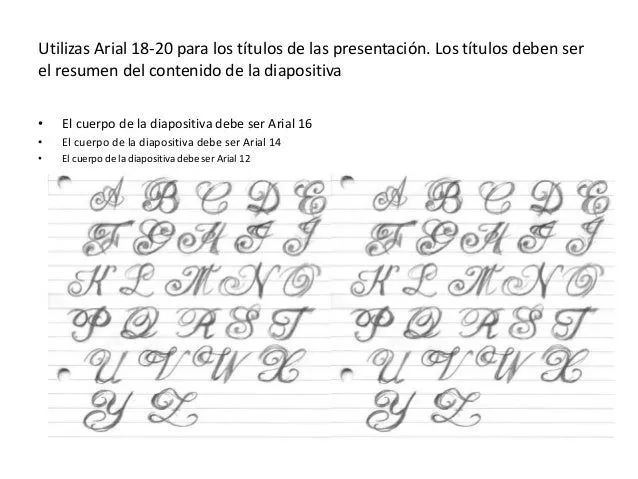 Utilizas Arial 18-20 para los títulos de las presentación. Los títulos deben ser
el resumen del contenido de la diapositiva
• El cuerpo de la diapositiva debe ser Arial 16
• El cuerpo de la diapositiva debe ser Arial 14
• El cuerpo de la diapositiva debe ser Arial 12
A B C D E A B C D E
F G H I J F G H I J
K L M N O K L M N O
P Q R S T P Q R S T
U V W X U V W X
Y Z Y Z